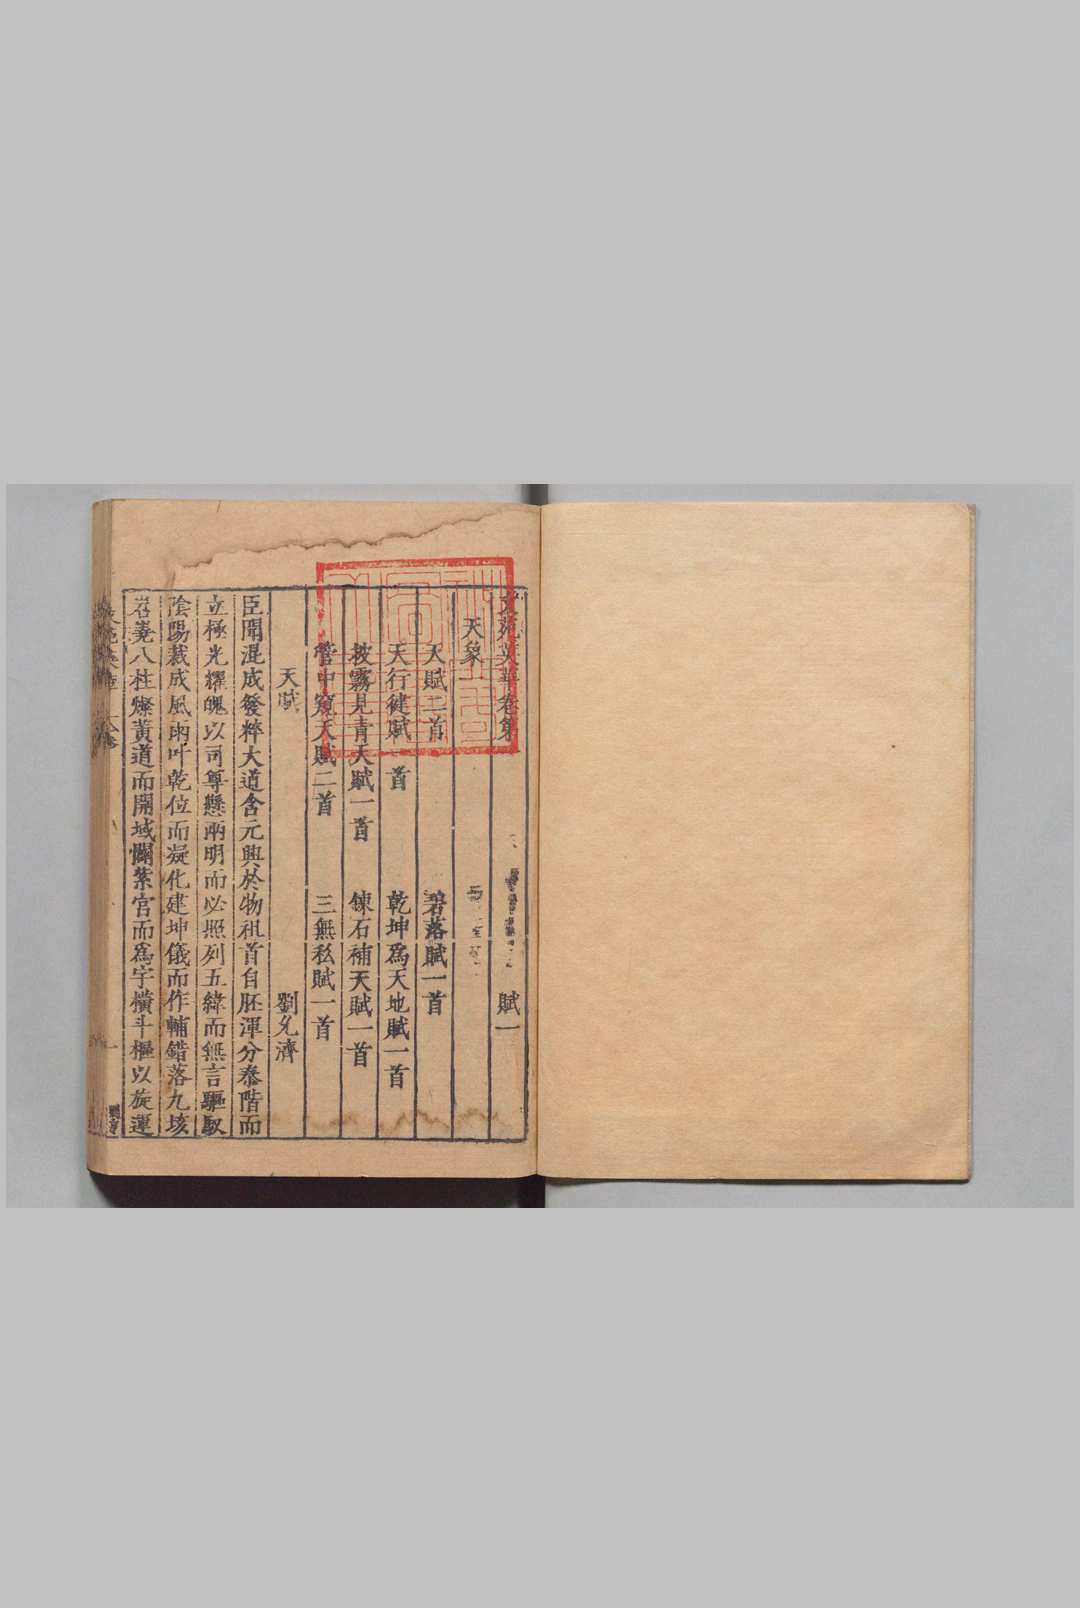 文苑英華卷第 賦一
天象一
天賦二首 碧落賦一首
天行健賦一首 乾坤爲天地賦一首
披霧見青天賦一首 鍊石補天賦一首
管中窺天賦二首 三無私賦一首
天賦 劉允濟
臣聞混成發粹大道含元興於物祖首自胚渾分泰階而
立極光耀魄以司尊懸兩明而必照列五緯而無言驅馭
陰陽裁成風雨叶乾位而凝化建坤儀而作輔錯落九垓
岧嶤八柱燦黃道而開域闢紫宮而爲宇橫斗樞以旋運